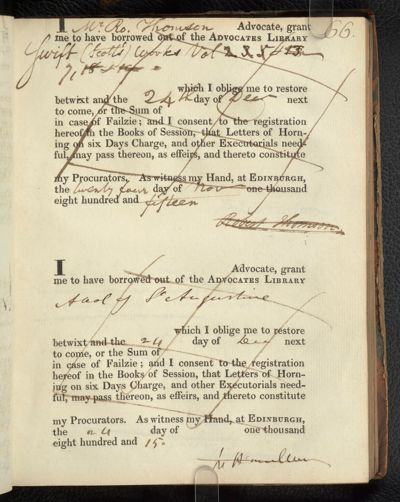 I Mr. Ro. Thomson Advocate, grant 66.
me to have borrowed out of the ADVOCATES LIBRARY
Swift (Scott's) Works Vol
which I oblige me to restore
betwixt and the 24th day of Dec next
to come, or the Sum of
in case of Failzie; and I consent to the registration
hereof in the Books of Session, that Letters of Horn-
ing on six Days Charge, and other Executorials need-
ful, may pass thereon, as effeirs, and thereto constitute
my Procurators. As witness my Hand, at EDINBURGH,
the twenty four day of Nov one thousand
eight hundred and fifteen
Robert Thomson
I Advocate, grant
me to have borrowed out of the ADVOCATES LIBRARY
of St Augustine
which I oblige me to restore
betwixt and the 24 day of Dec next
to come, or the Sum of
in case of Failzie; and I consent to the registration
hereof in the Books of Session, that Letters of Horn-
ing on six Days Charge, and other Executorials need-
ful, may pass thereon, as effeirs, and thereto constitute
my Procurators. As witness my Hand, at EDINBURGH,
the 24 day of one thousand
eight hundred and 15.